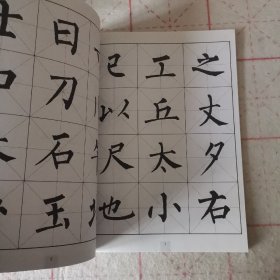 之丈夕右
工丘太小
以尺也
日刀石玉